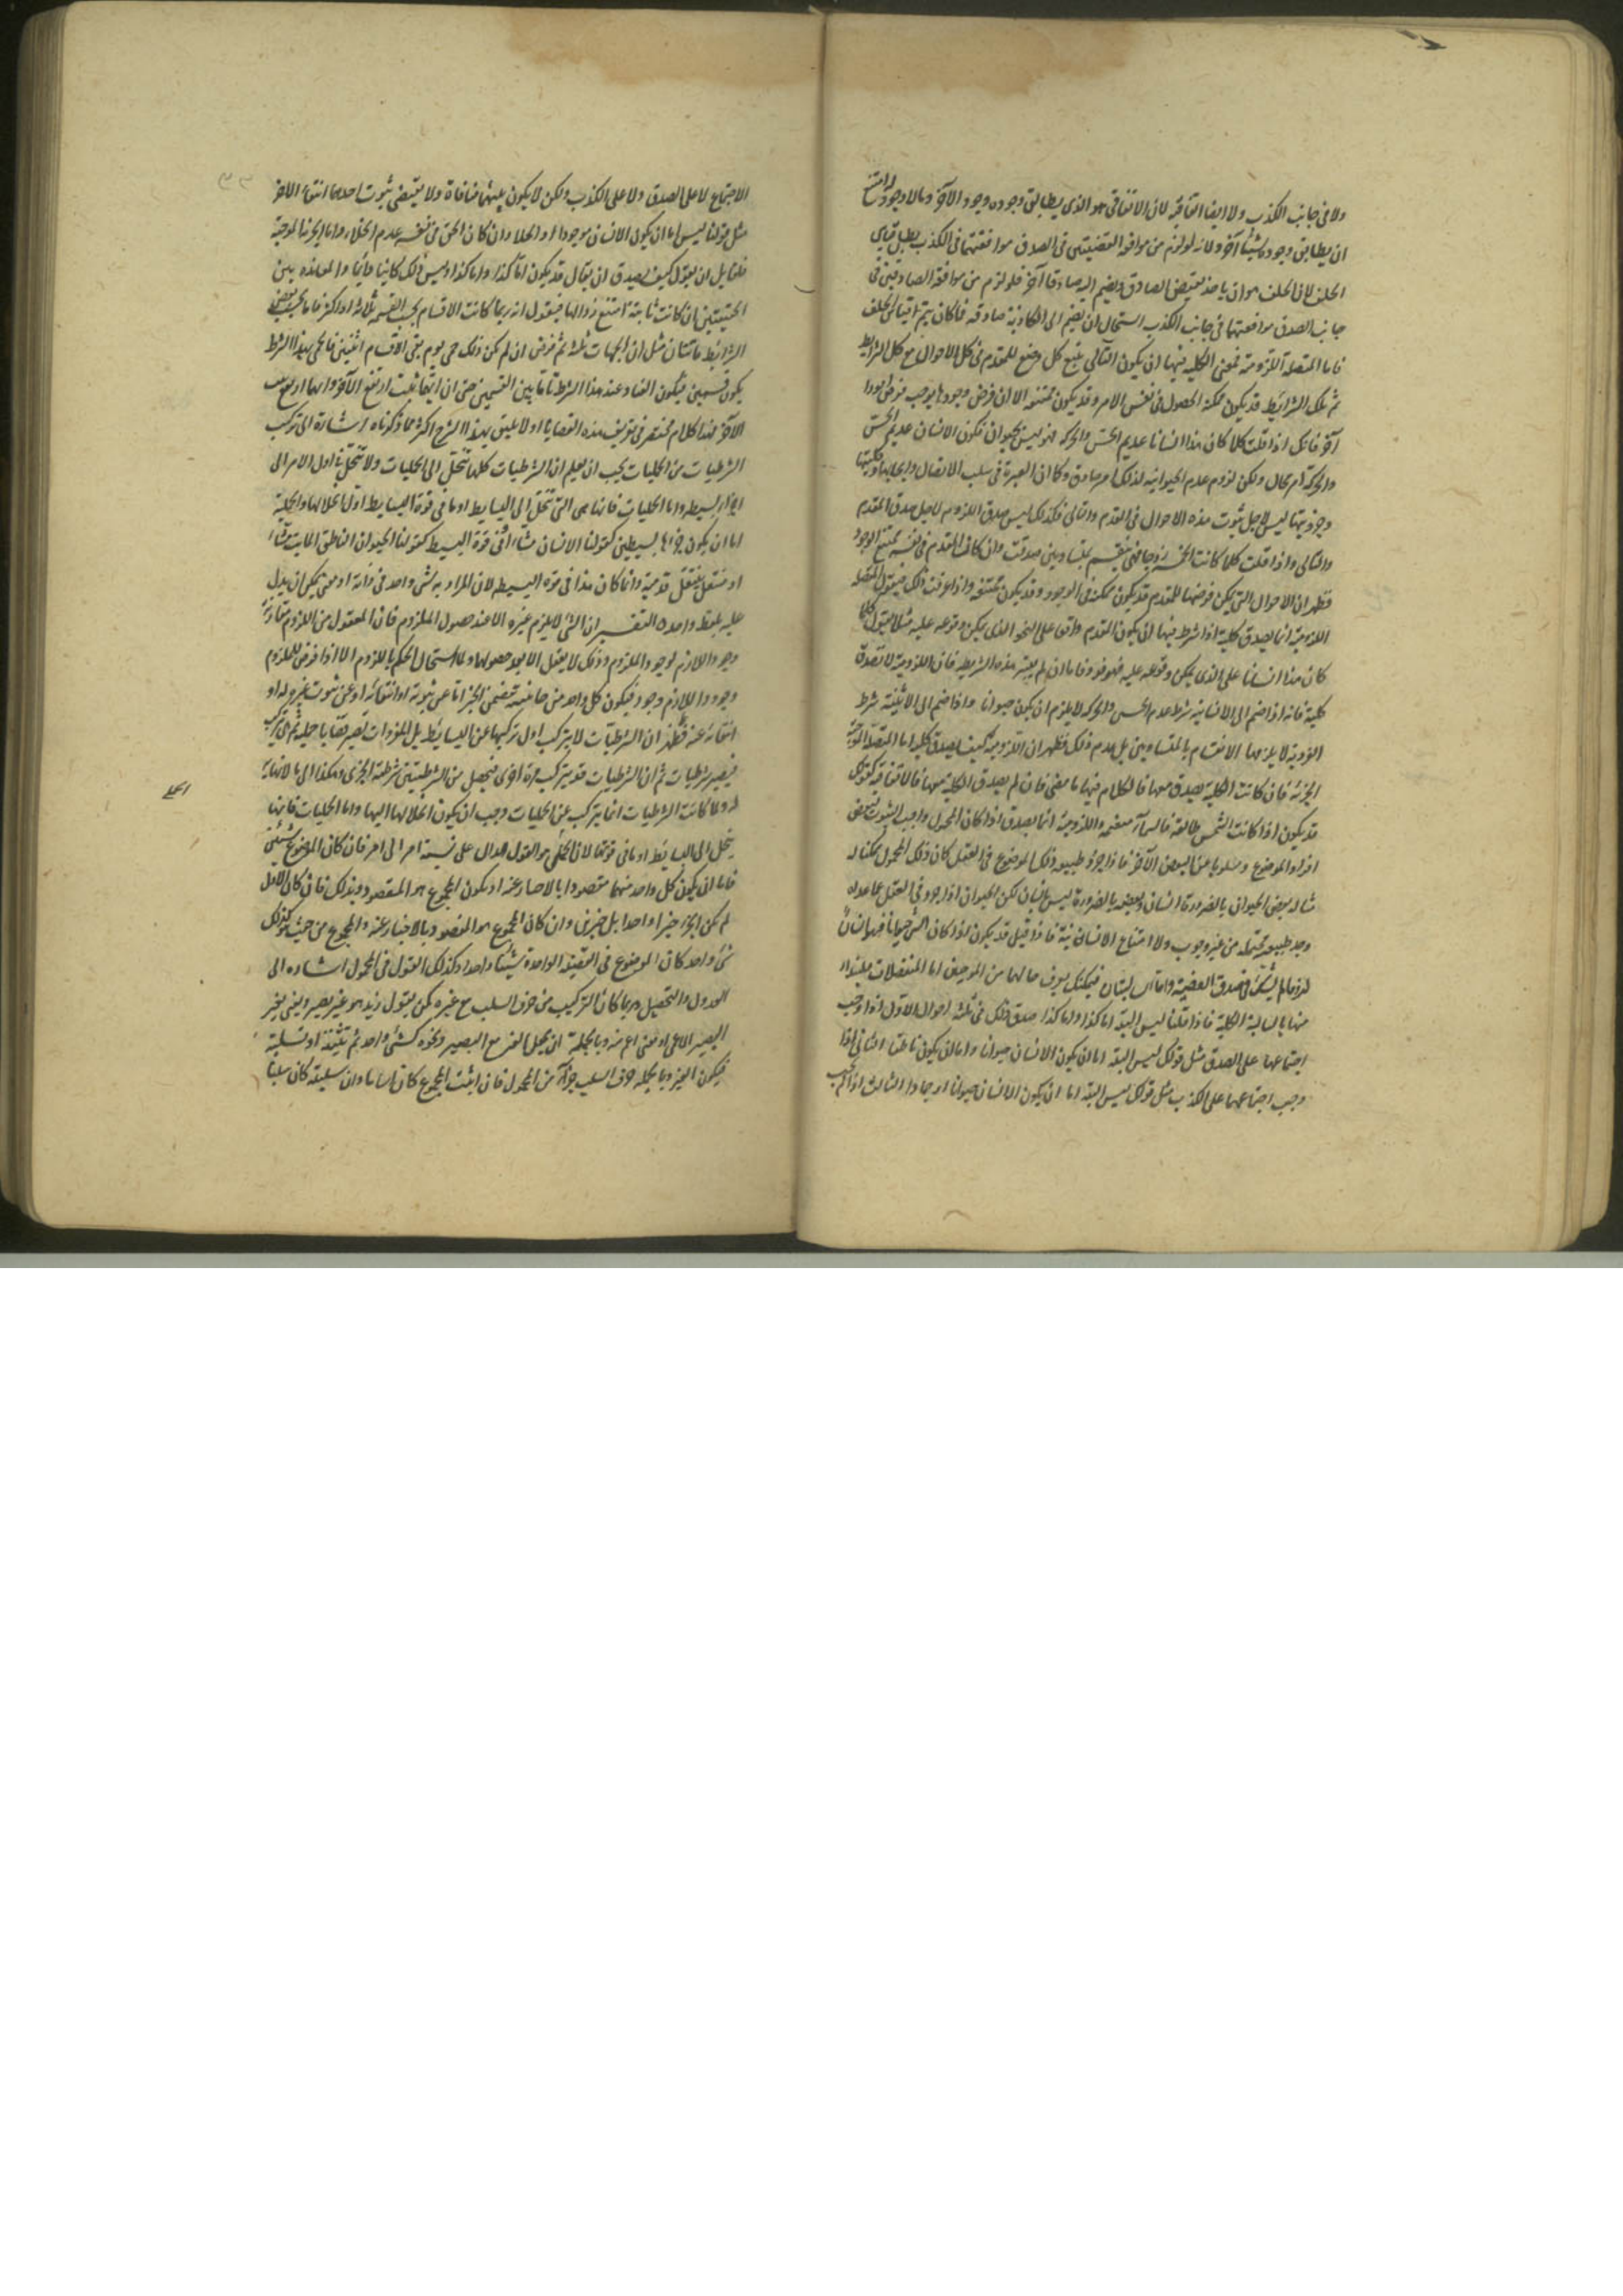 ولا في جانب الكذب ولا ايضا اتفاقية لان الاتفاقي هو الذي يطابق وجوده وجود الآخر وما لا وجود له امتنع
ان يطابق وجوده شيئا آخر ولانه لو لزم من موافقة القضيتين في الصدق موافقتهما في الكذب بطل قياس
الخلف لان الخلف هو ان ياخذ نقيض الصادق ويضم اليه صادقا آخر فلو لزم من موافقة الصادقين في
جانب الصدق موافقتهما في جانب الكذب استحال ان يضم الى الكاذبة صادقة فما كان يتم قياس الخلف
فاما المتصلة اللزومية فمعنى الكلية فيها ان يكون التالي يتبع كل وضع للمقدم في كل الاحوال مع كل الشرايط
ثم تلك الشرايط قد يكون ممكنة الحصول في نفس الامر وقد يكون ممتنعة الا ان فرض وجودها يوجب فرض امورا
آخر فانك اذا قلت كلما كان هذا انسانا عديم الحس والحركة فهو ليس بحيوان فكون الانسان عديم الحس
والحركة امر محال ولكن لزوم عدم الحيوانية لذلك امر صادق وكما ان العبرة في سلب الاتصال وايجابها وكليتها
وجزئيتها ليس لاجل ثبوت هذه الاحوال في المقدم والتالي فكذلك ليس صدق اللزوم لاجل صدق المقدم
والتالي واذا قلت كلما كانت الخمسة زوجا فهي ينقسم بمتساويين صدقت وان كان المقدم في نفسه ممتنع الوجود
فظهر ان الاحوال التي يمكن فرضها للمقدم قد يكون ممكنة في الوجود وقد يكون ممتنعة واذا عرفت ذلك فنقول المتصلة
اللزومية انما يصدق كلية اذا شرط فيها ان يكون المقدم واقع على النحو الذي يمكن وقوعه عليه مثلا يقول كلما
كان هذا انسانا على الذي يمكن وقوعه عليه فهو فاما ان لم يعتبر هذه الشريطة فان اللزومية لا تصدق
كلية فانه اذا ضم الى الانسانية شرط عدم الحس والحركة لا يلزم ان يكون حيوانا واذا ضم الى الاثنينية شرط
الفردية لا يلزمها الانقسام بالمتساويين بل عدم ذلك فظهر ان اللزومية كيف يصدق كلية اما المتصلة الموجبة
الجزئية فان كانت الكلية يصدق معها فالكلام فيها ما مضى فان لم يصدق الكلية معها فالاتفاقية كقولك
قد يكون اذا كانت الشمس طالعة فالسماء متغيمة واللزومية انما يصدق اذا كان المحمول واجب الثبوت لبعض
افراد الموضوع ومسلوبا عن البعض الآخر فاذا جرد طبيعة ذلك الموضوع في العقل كان ذلك المحمول ممكنا له
مثاله بعض الحيوان بالضرورة انسان وبعضه بالضرورة ليس بانسان لكن الحيوان اذا جرد في العقل عما عداه
وجد طبيعة محتملة من غير وجوب ولا امتناع الانسانية فاذا قيل قد يكون اذا كان الشئ حيوانا فهو انسان
لزوما صدق القضية واما السالبتان فيمكنك يعرف حالهما من الموجبتين اما المنفصلات فلنبدأ
منها بالسالبة الكلية فاذا قلنا ليس البتة اما كذا واما كذا صدق ذلك في ثلثة احوال الاول اذا وجب
اجتماعهما على الصدق مثل قولك ليس البتة اما ان يكون الانسان حيوانا واما ان يكون ناطقا الثاني اذا
وجب اجتماعهما على الكذب مثل قولك ليس البتة اما ان يكون الانسان صهالا او جمادا الثالث اذا لم يجب
الاجتماع لا على الصدق ولا على الكذب ولكن لا يكون بينهما منافاة ولا يقتضي ثبوت احدهما انتفاء الآخر
مثل قولنا ليس اما ان يكون الانسان موجودا او الخلاء وان كان الحق في نفسه عدم الخلاء واما الجزئية الموجبة
فلقايل ان يقول كيف يصدق ان يقال قد يكون اما كذا واما كذا وليس ذلك كليا دائما والمعاندة بين
الحقيقتين ان كانت ثابتة امتنع زوالها فنقول انه ربما كانت الاقسام بحسب القسمة ثلاثة او اكثر فاما بحسب بعض
الشرايط فاثنان مثل ان الجهات ثلثة ثم نفرض ان لم يكن ذلك في يوم بقي الاقسام اثنين فالحكم بهذا الشرط
يكون قسمين فيكون العناد عند هذا الشرط ثابتا بين القسمين حتى ان ايهما يثبت ارتفع الآخر وايهما ارتفع ثبت
الآخر فهذا كلام مختصر في تعريف هذه القضايا اذ لا يليق بهذا الشرح اكثر مما ذكرناه اشارة الى تركيب
الشرطيات من الحمليات يجب ان يعلم ان الشرطيات كلها تنحل الى الحمليات ولا تنحل في اول الامر الى
اجزاء بسيطة واما الحمليات فانها هي التي تنحل الى البسايط او ما في قوة البسايط اول انحلالها والحملية
اما ان يكون جزءاها بسيطين كقولنا الانسان مشاء او في قوة البسيط كقولنا الحيوان الناطق المايت مشاء
او منتقل بنقل قدميه وانما كان هذا في قوة البسيط لان المراد به شئ واحد في ذاته او معنى يمكن ان يدل
عليه بلفظ واحد التفسير ان الشئ لا يلزم غيره الا عند حصول الملزوم فان المعقول من اللزوم مقارنة
وجود اللازم لوجود الملزوم وذلك لا يعقل الا بعد حصولها ولما استحال الحكم باللزوم الا اذا فرض للملزوم
وجود واللازم وجود فيكون كل واحد من جانبيه تتضمن الخبر اما عن ثبوته او انتفائه او عن ثبوت غيره له او
انتفائه عنه فظهر ان الشرطيات لا يتركب اول تركيبها عن البسايط بل المفردات تصير قضايا حملية ثم هي تركب
فيصير شرطيات ثم ان الشرطيات قد يتركب مرة اخرى فيحصل من الشرطيتين شرطية اخرى وهكذا الى ما لا نهاية
له ولما كانت الشرطيات انما يتركب عن الحمليات وجب ان يكون انحلالها اليها واما الحمليات فانها
ينحل الى البسايط او ما في قوتها لان الحملي هو القول الدال على نسبة امر الى امر فان كان الموضوع شيئين
فاما ان يكون كل واحد منهما مقصودا بالاخبار عنه او يكون المجموع هو المقصود بذلك فان كان الاول
لم يكن الخبر خبرا واحدا بل خبرين وان كان المجموع هو المقصود بالاخبار عنه والمجموع من حيث هو كذلك
شئ واحد كان الموضوع في القضية الواحدة شيئا واحدا وكذلك القول في المحمول اشارة الى
العدول والتحصيل وربما كان التركيب من حرف السلب مع غيره كمن يقول زيد هو غير بصير ويعنى بغير
البصير الاعمى او معنى اعم منه وبالجملة ان يجعل الغير مع البصير ونحوه كشئ واحد ثم تثبته او تسلبه
فيكون الغير وبالجملة حرف السلب جزءا من المحمول فان اثبت المجموع كان اثباتا وان سلبته كان سلبا